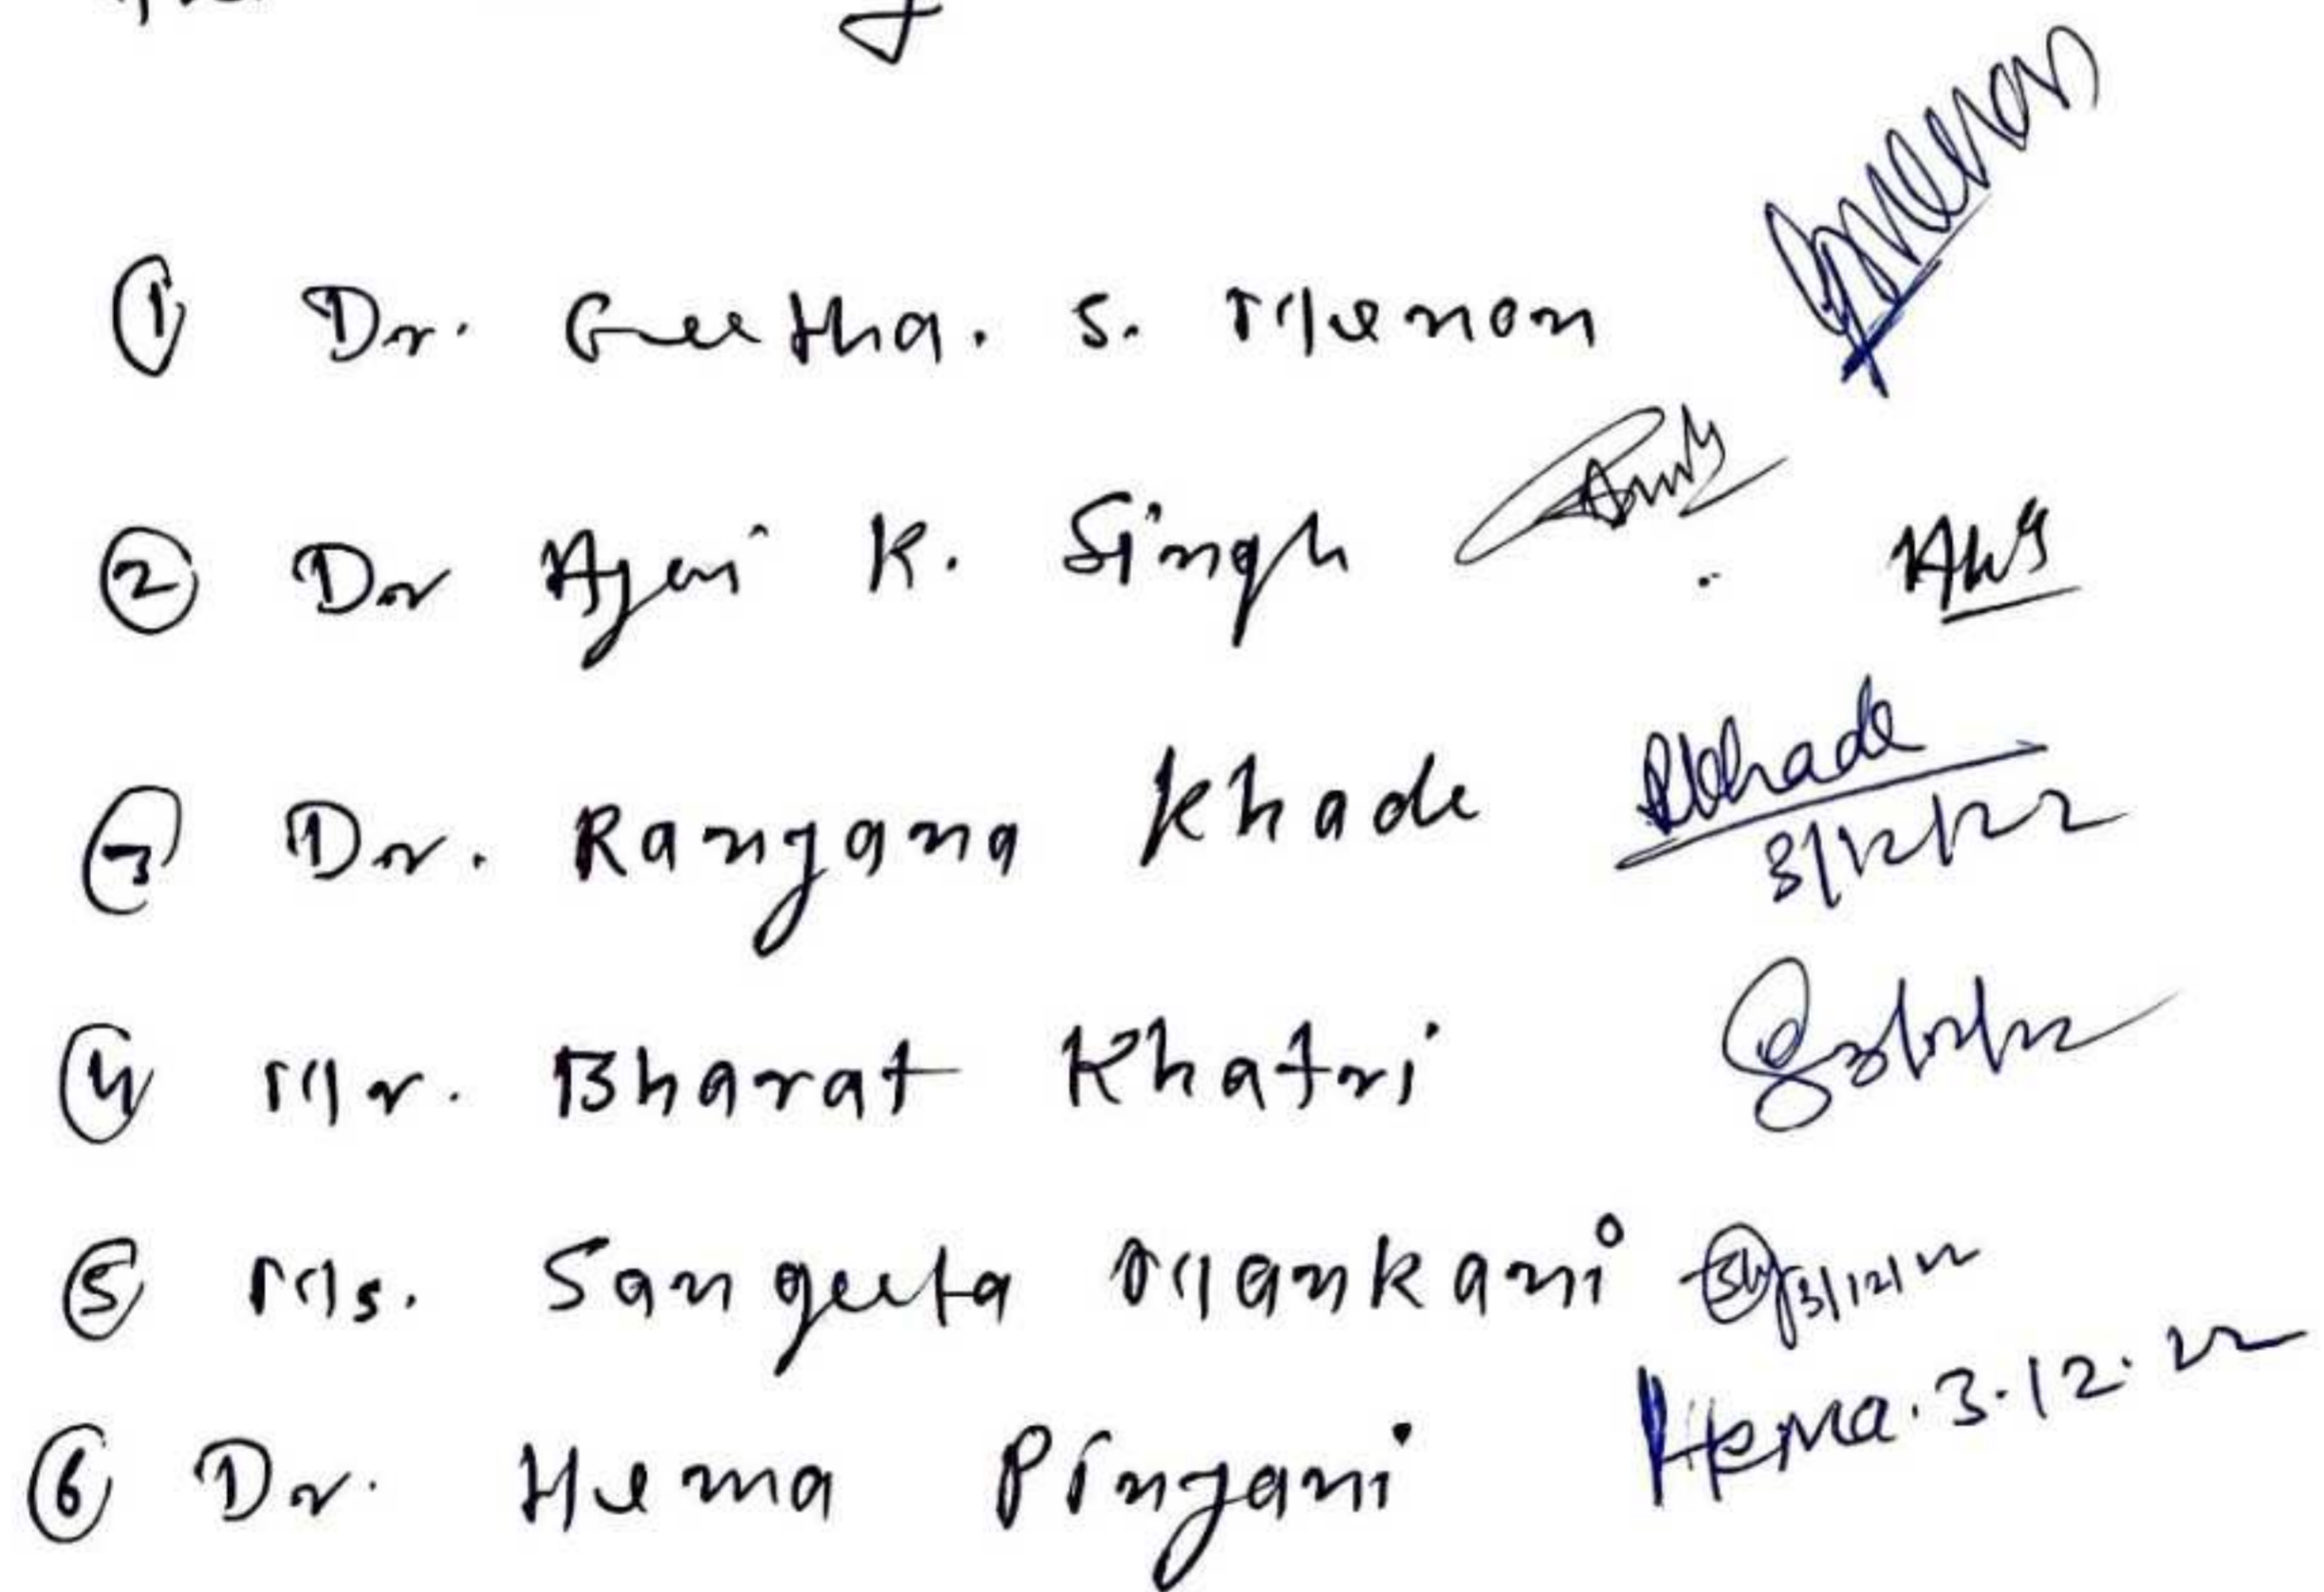 ① Dr. Geetha. S. Menon GMenon
② Dr Ajai K. Singh
③ Dr. Ranjana Khade RKhade
3/12/22
④ Mr. Bharat Khatri 3/12/22
⑤ Ms. Sangeeta Mankani 3/12/22
⑥ Dr. Hema Pinjani Hema. 3.12.22